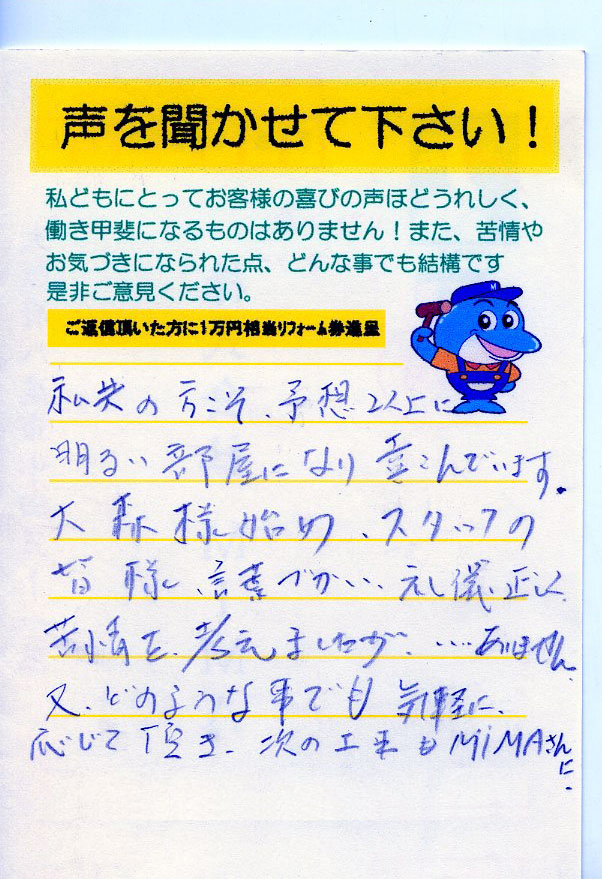 声を聞かせて下さい！
私どもにとってお客様の喜びの声ほどうれしく、
働き甲斐になるものはありません！また、苦情や
お気づきになられた点、どんな事でも結構です
是非ご意見ください。
ご返信頂いた方に1万円相当リフォーム券進呈
M
私共の方こそ、予想以上に
明るい部屋になり喜こんでいます。
大森様始め、スタッフの
皆様、言葉づかい、礼儀正しく、
苦情を、考えましたが、…ありません。
又、どのような事でも気軽に、
応じて頂き、次の工事もMiMAさんに。